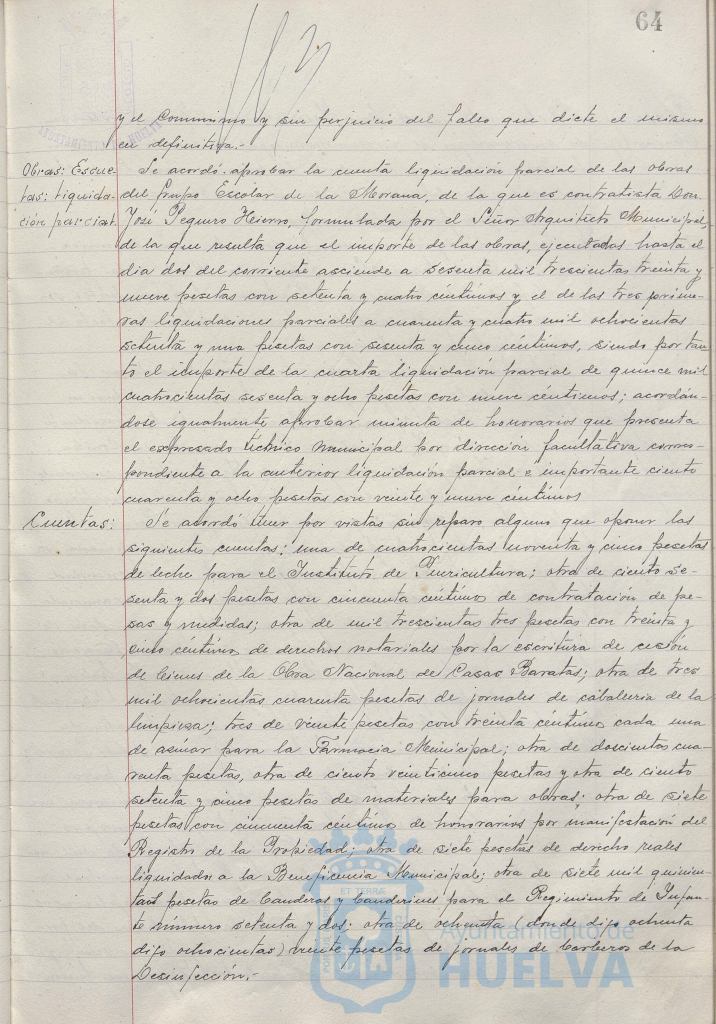 64
y el Comminmo y sin perjuicio del faleo que dicte el mismo
en definitiva.-
Obras: Escue-
las: liquida-
ción parcial.
Se acordó aprobar la cuenta liquidación parcial de las obras
del Grupo Escolar de la Morana, de la que es contratista Don
José Peguero Hierro, formulada por el Señor Arquitecto Municipal,
de la que resulta que el importe de las obras, ejecutadas hasta el
dia dos del corriente asciende a sesenta mil trescientas treinta y
nueve pesetas con setenta y cuatro céntimos y el de las tres prime-
ras liquidaciones parciales a cuarenta y cuatro mil ochocientas
setenta y una pesetas con sesenta y cinco céntimos, siendo por tan-
to el importe de la cuarta liquidación parcial de quince mil
cuatrocientas sesenta y ocho pesetas con nueve céntimos; acordán-
dose igualmente aprobar minuta de honorarios que presenta
el expresado técnico municipal por dirección facultativa corres-
pondiente a la anterior liquidación parcial e importante ciento
cuarenta y ocho pesetas con veinte y nueve céntimos
Cuentas:
Se acordó tener por vistas sin reparo alguno que oponer las
siguientes cuentas: una de cuatrocientas noventa y cinco pesetas
de leche para el Instituto de Puericultura; otra de ciento se-
senta y dos pesetas con cincuenta céntimos de contratación de pe-
sas y medidas; otra de mil trescientas tres pesetas con treinta y
cinco céntimos de derechos notariales por la escritura de cesión
de bienes de la Obra Nacional de Casas Baratas; otra de tres
mil ochocientas cuarenta pesetas de jornales de caballeria de la
limpieza; tres de veinte pesetas con treinta céntimos cada una
de azúcar para la Farmacia Municipal; otra de doscientas cua-
renta pesetas, otra de ciento veinticinco pesetas y otra de ciento
setenta y cinco pesetas de materiales para obras; otra de siete
pesetas con cincuenta céntimos de honorarios por manifestación del
Registro de la Propiedad; otra de siete pesetas de derecho reales
liquidados a la Beneficencia Municipal; otra de siete mil quinien-
tas pesetas de banderas y banderines para el Regimiento de Infan-
te número setenta y dos; otra de ochenta (donde dijo ochenta
dijo ochocientas) veinte pesetas de jornales de barberos de la
Desinfección.-
ET TERRÆ
Ayuntamiento de
HUELVA